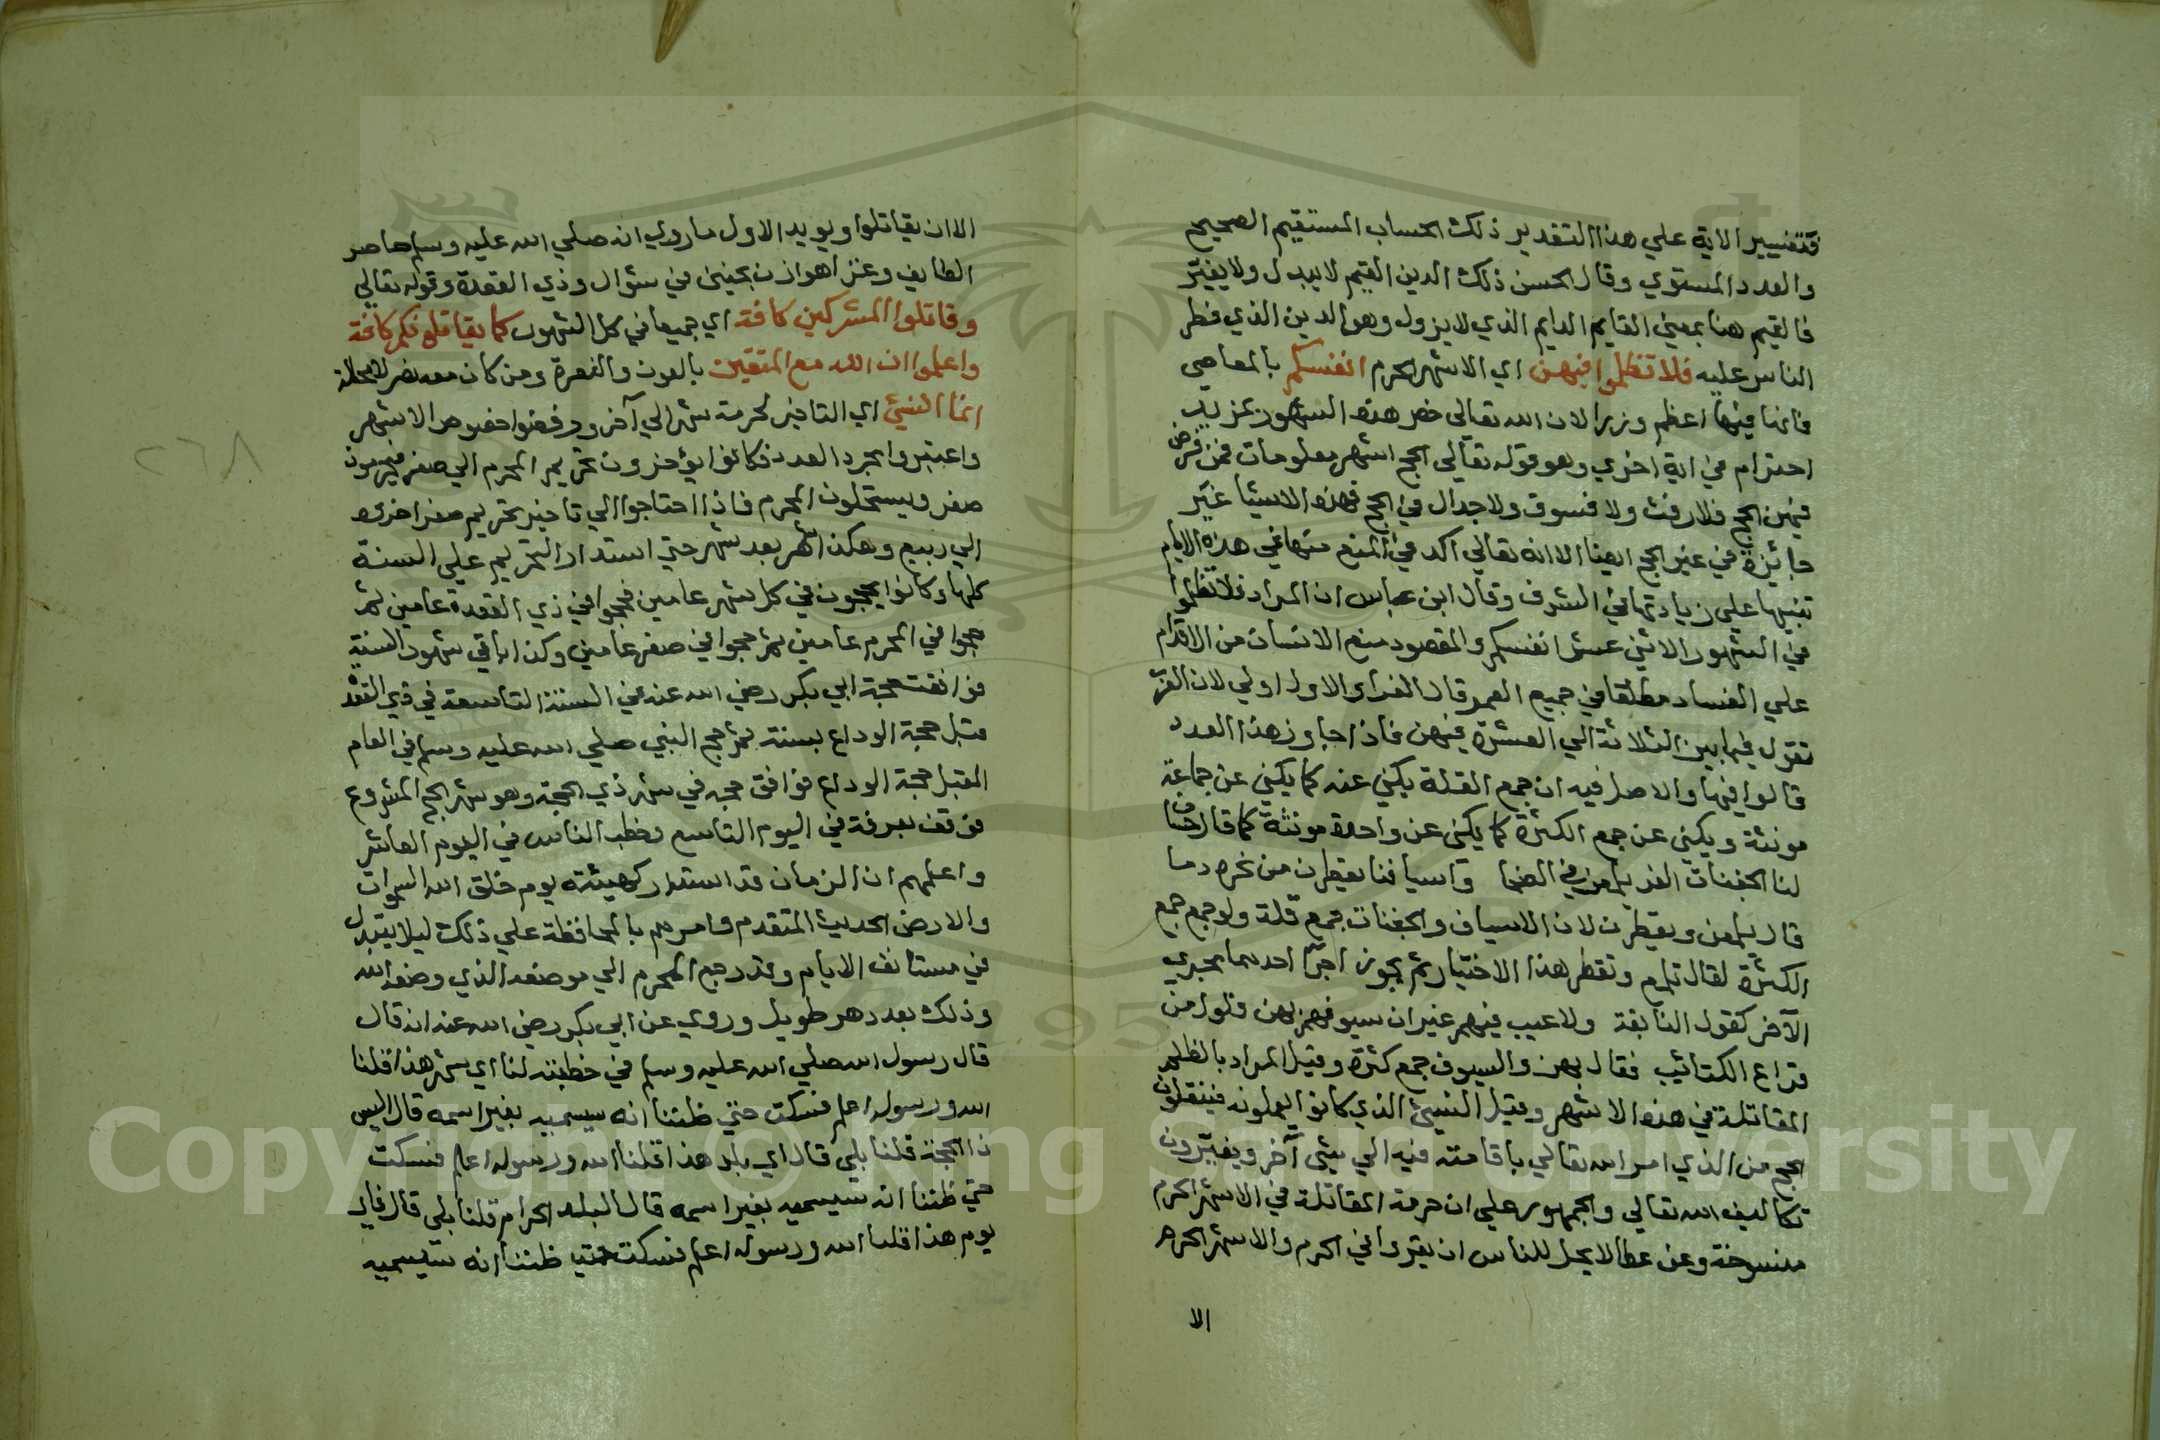 فتفسير الاية علي هذا التقدير ذلك الحساب المستقيم الصحيح
والعدد المستوي وقال الحسن ذلك الدين القيم لا يبدل ولا يغير
فالقيم هنا بمعني القايم الدايم الذي لا يزول وهو الدين الذي فطر
الناس عليه فلا تظلموا فيهن اي الاشهر الحرم انفسكم بالمعاصي
فانها فيها اعظم وزرا لان الله تعالى خص هذه الشهور بمزيد
احترام في اية اخري وهو قوله تعالى الحج اشهر معلومات فمن فرض
فيهن الحج فلا رفث ولا فسوق ولا جدال في الحج فهذه الاشيا غير
جائزة في غير الحج ايضا الا انه تعالي اكد في المنع منها في هذه الايام
تنبيها علي زيادتها في الشرف وقال ابن عباس ان المراد فلا تظلموا
في الشهور الاثني عشر انفسكم والمقصود منع الانسان من الاقدام
علي الفساد مطلقا في جميع العمر قال الفراء والاول اولي لان العرب
تقول فيما بين الثلاثة الي العشرة فيهن فاذا جاوز هذا العدد
قالوا فيها والاصل فيه ان جمع القلة يكني عنه كما يكني عن جماعة
مونثة ويكني عن جمع الكثرة كما يكني عن واحدة مونثة كما قال حسان
لنا الجفنات الغر يلمعن في الضحا واسيافنا يقطرن من نجده دما
قال يلمعن ويقطرن لان الاسياف والجفنات جمع قلة ولو جمع جمع
الكثرة لقال تلمع وتقطر هذا الاختيار ثم يجوز اجرا احدهما مجري
الآخر كقول النابغة ولا عيب فيهم غير ان سيوفهم بهن فلول من
قراع الكتائيب فقال بهن والسيوف جمع كثرة وقيل المراد بالظلم
المقاتلة في هذه الاشهر وقيل النسئ الذي كانوا يعملونه فينقلون
الحج من الذي امر الله تعالي باقامته فيه الي شئ آخر ويغيرون
تكاليف الله تعالي والجمهور علي ان حرمة المقاتلة في الاشهر الحرم
منسوخة وعن عطا لا يحل للناس ان يغزوا في الحرم والاشهر الحرم
الا
الا ان يقاتلوا ويويد الاول ما روي انه صلي الله عليه وسلم حاصر
الطايف وغزا هوازن بحنين في شوال وذي القعدة وقوله تعالي
وقاتلوا المشركين كافة اي جميعا في كل الشهور كما يقاتلونكم كافة
واعلموا ان الله مع المتقين بالعون والنصرة ومن كان معه نصر لا محالة
انما النسئ اي التاخير لحرمة شهر الي آخر ورفضوا خصوص الاشهر
واعتبروا مجرد العدد فكانوا يؤخرون تحريم المحرم الي صفر فيحرمون
صفر ويستحلون المحرم فاذا احتاجوا الي تاخير تحريم صفر اخروه
الي ربيع وهكذا شهر بعد شهر حتي استدار التحريم علي السنة
كلها وكانوا يحجون في كل شهر عامين فحجوا في ذي القعدة عامين ثم
حجوا في المحرم عامين ثم حجوا في صفر عامين وكذا باقي شهور السنة
فوافقت حجة ابي بكر رضي الله عنه في السنة التاسعة في ذي القعدة
قبل حجة الوداع بسنة ثم حج النبي صلي الله عليه وسلم في العام
المقبل حجة الوداع فوافق حجه في شهر ذي الحجة وهو شهر الحج المشروع
فوقف بعرفة في اليوم التاسع وخطب الناس في اليوم العاشر
واعلمهم ان الزمان قد استدار كهيئته يوم خلق الله السموات
والارض الحديث المتقدم وامرهم بالمحافظة علي ذلك ليلا يتبدل
في مستانف الايام وقد رجع المحرم الي موضعه الذي وضعه الله
وذلك بعد دهر طويل وروي عن ابي بكر رضي الله عنه انه قال
قال رسول الله صلي الله عليه وسلم في خطبته لنا اي شهر هذا قلنا
الله ورسوله اعلم فسكت حتي ظننا انه سيسميه بغير اسمه قال اليس
ذا الحجة قلنا بلي قال اي بلد هذا قلنا الله ورسوله اعلم فسكت
حتي ظننا انه سيسميه بغير اسمه قال البلد الحرام قلنا بلى قال فاي
يوم هذا قلنا الله ورسوله اعلم فسكت حتي ظننا انه سيسميه
٢٦٨
Copyright © King Saud University